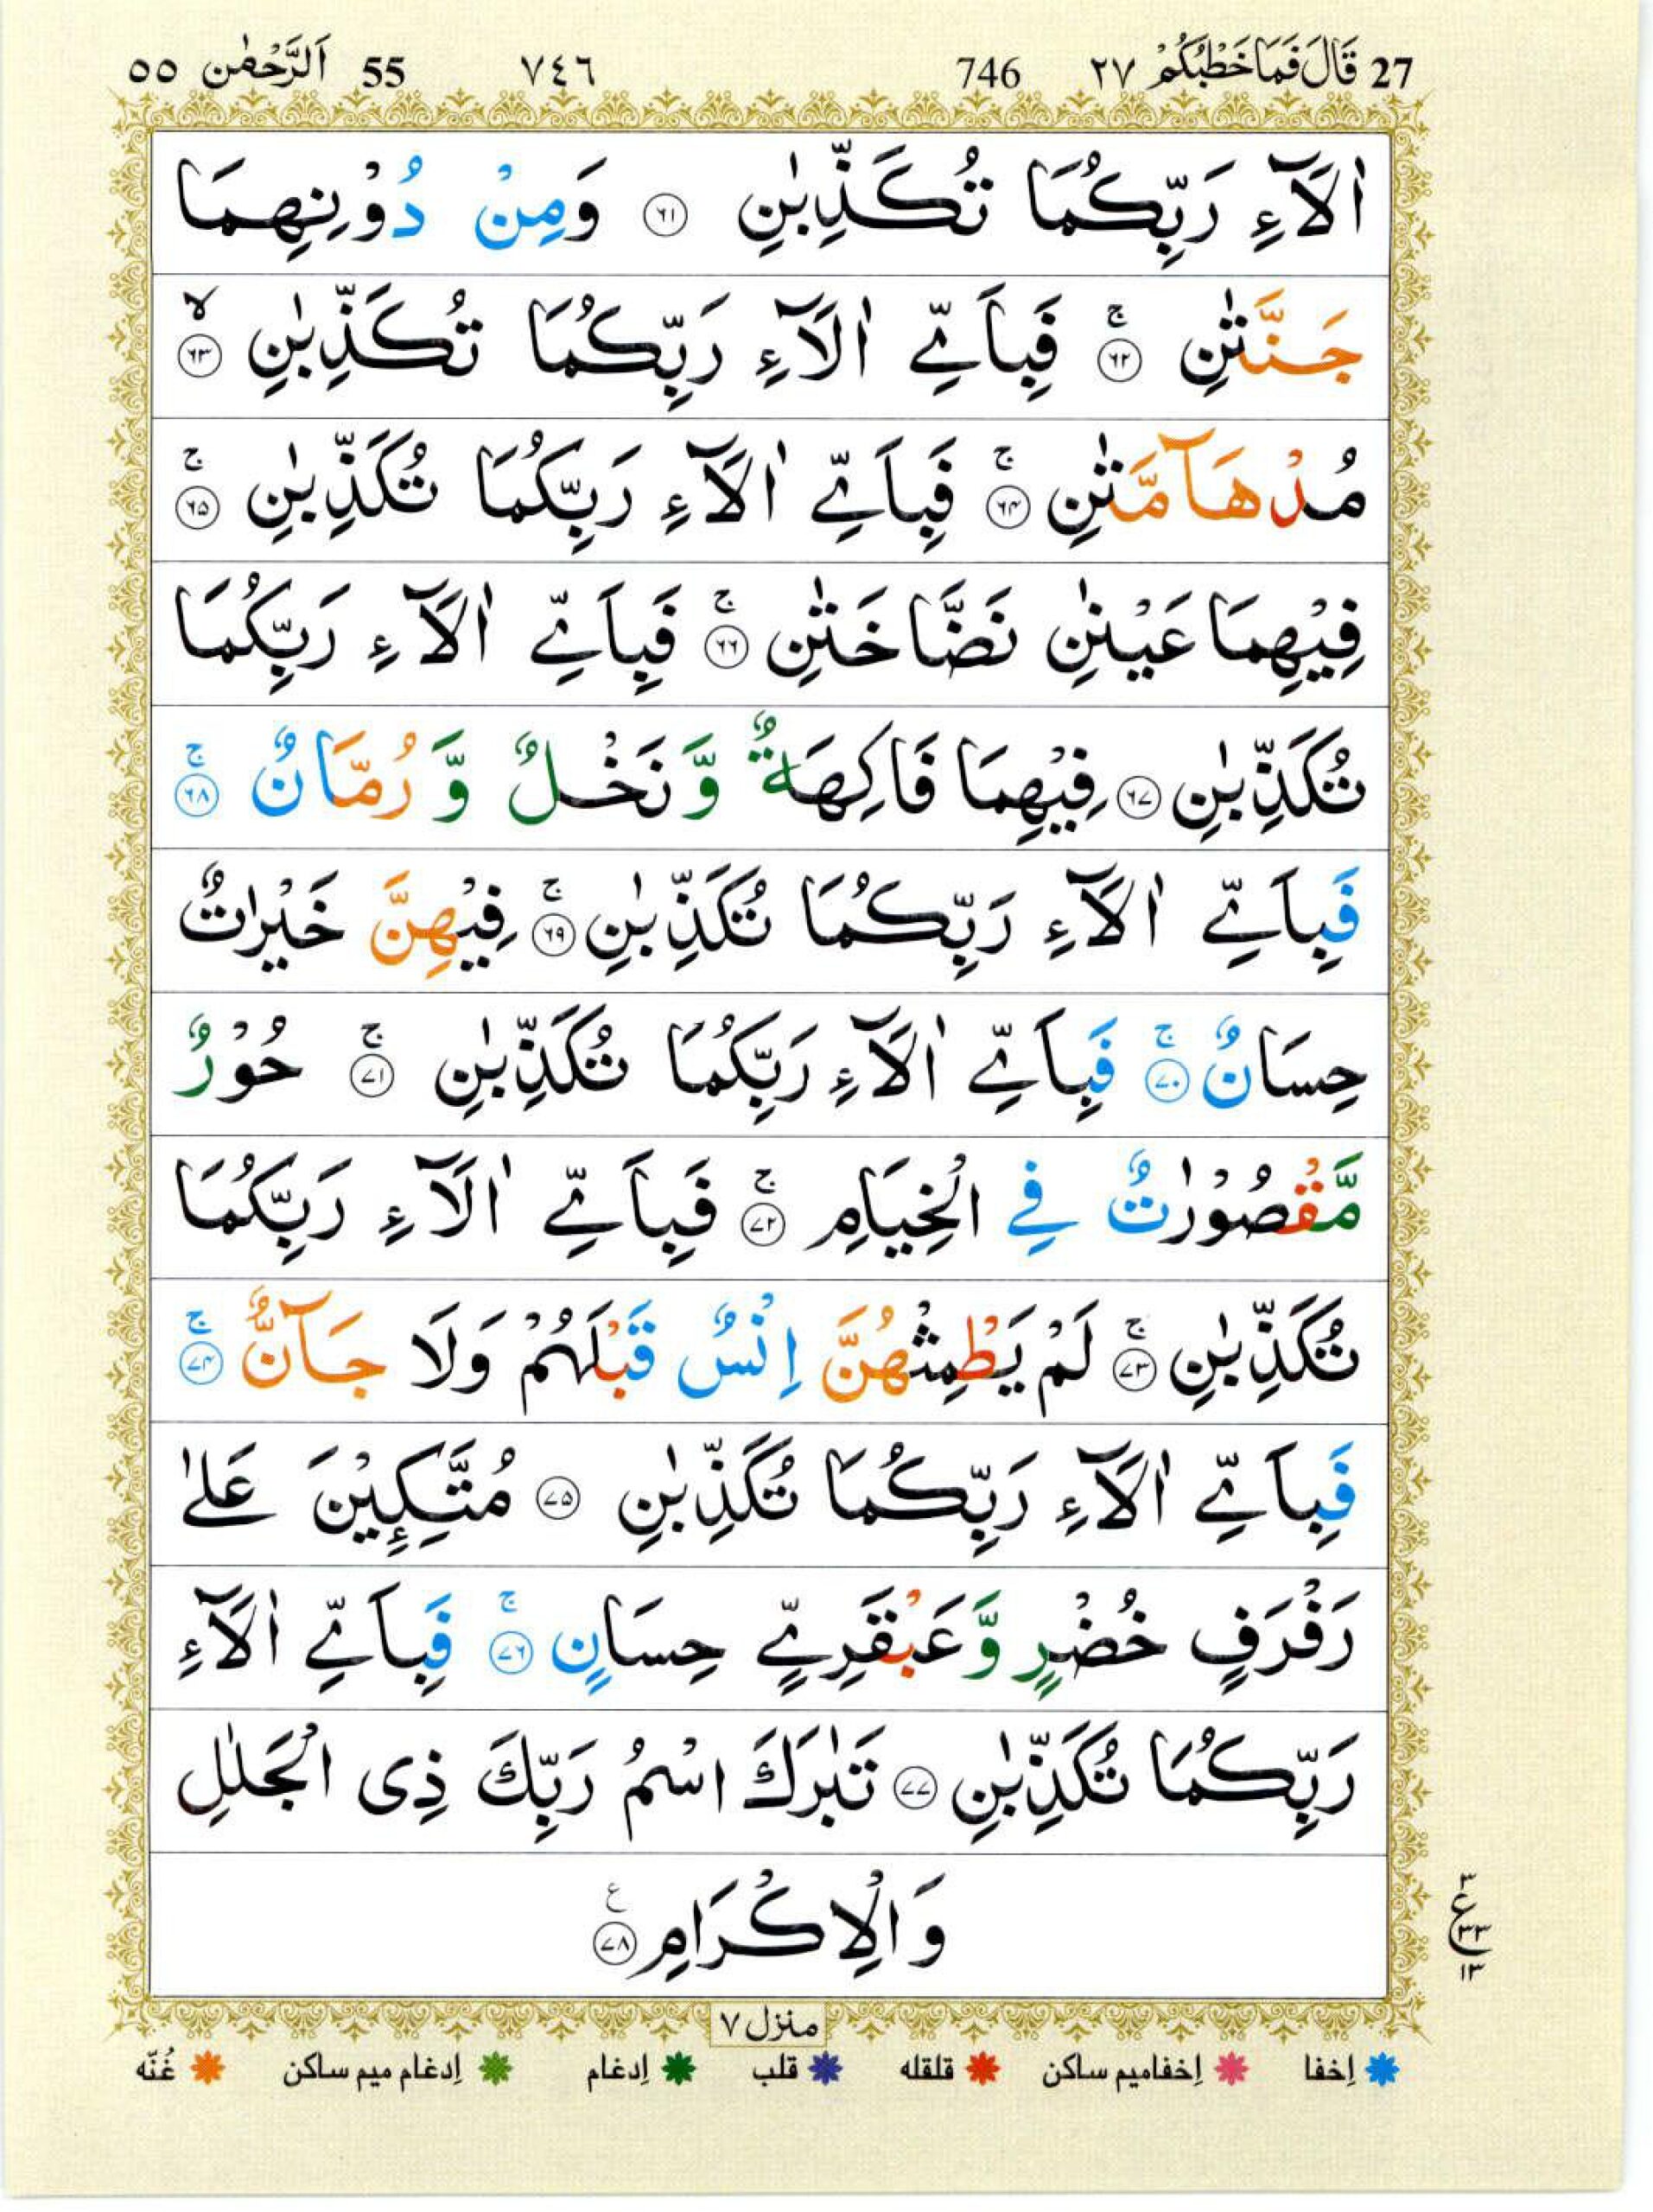 27 قَالَ فَمَا خَطْبُكُمْ ٢٧ 746 ٧٤٦ 55 اَلرَّحْمٰن ٥٥
اٰلَآءِ رَبِّكُمَا تُكَذِّبٰنِ ۝۶۱ وَمِنْ دُوْنِهِمَا
جَنَّتٰنِ ۚ۝۶۲ فَبِاَیِّ اٰلَآءِ رَبِّكُمَا تُكَذِّبٰنِ ۙ۝۶۳
مُدْهَآمَّتٰنِ ۚ۝۶۴ فَبِاَیِّ اٰلَآءِ رَبِّكُمَا تُكَذِّبٰنِ ۚ۝۶۵
فِیْهِمَا عَیْنٰنِ نَضَّاخَتٰنِ ۚ۝۶۶ فَبِاَیِّ اٰلَآءِ رَبِّكُمَا
تُكَذِّبٰنِ ۝۶۷ فِیْهِمَا فَاكِهَةٌ وَّنَخْلٌ وَّرُمَّانٌ ۚ۝۶۸
فَبِاَیِّ اٰلَآءِ رَبِّكُمَا تُكَذِّبٰنِ ۚ۝۶۹ فِیْهِنَّ خَیْرٰتٌ
حِسَانٌ ۚ۝۷۰ فَبِاَیِّ اٰلَآءِ رَبِّكُمَا تُكَذِّبٰنِ ۚ۝۷۱ حُوْرٌ
مَّقْصُوْرٰتٌ فِی الْخِیَامِ ۚ۝۷۲ فَبِاَیِّ اٰلَآءِ رَبِّكُمَا
تُكَذِّبٰنِ ۚ۝۷۳ لَمْ یَطْمِثْهُنَّ اِنْسٌ قَبْلَهُمْ وَلَا جَآنٌّ ۚ۝۷۴
فَبِاَیِّ اٰلَآءِ رَبِّكُمَا تُكَذِّبٰنِ ۝۷۵ مُتَّكِـِٕیْنَ عَلٰی
رَفْرَفٍ خُضْرٍ وَّعَبْقَرِیٍّ حِسَانٍ ۚ۝۷۶ فَبِاَیِّ اٰلَآءِ
رَبِّكُمَا تُكَذِّبٰنِ ۝۷۷ تَبٰرَكَ اسْمُ رَبِّكَ ذِی الْجَلٰلِ
وَالْاِكْرَامِ ۝۷۸ ع
٣ ع ٣٣ ١٣
منزل ٧
إخفا إخفا ميم ساكن قلقله قلب إدغام إدغام ميم ساكن غُنّه